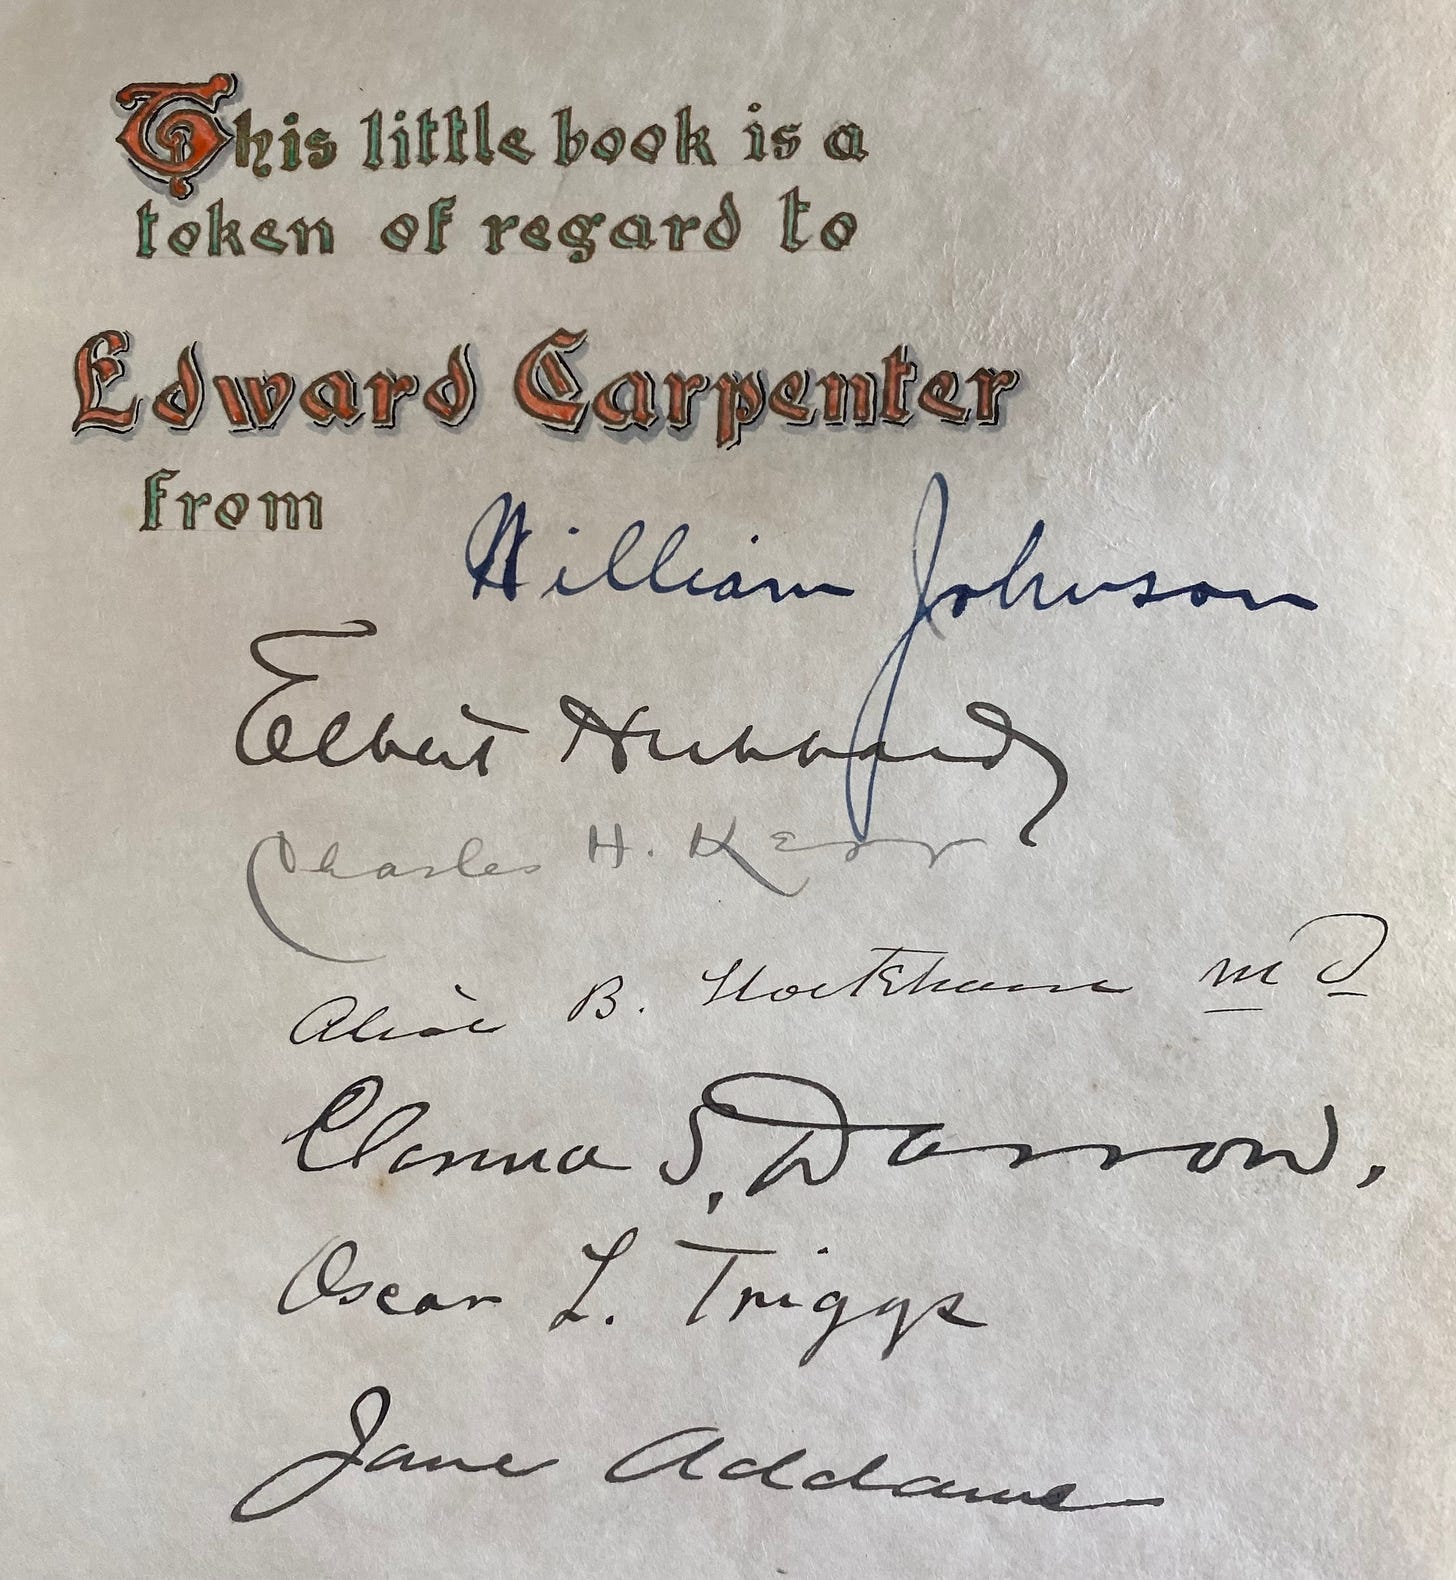 This little book is a
token of regard to
Edward Carpenter
from William Johnson
Elbert Hubbard
Charles H. Kerr
Alice B. Stockham MD
Clarence S. Darrow.
Oscar L. Triggs
Jane Addams